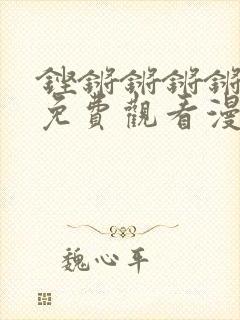 鏗鏘鏘鏘鏘
免費觀看漫
魏心平